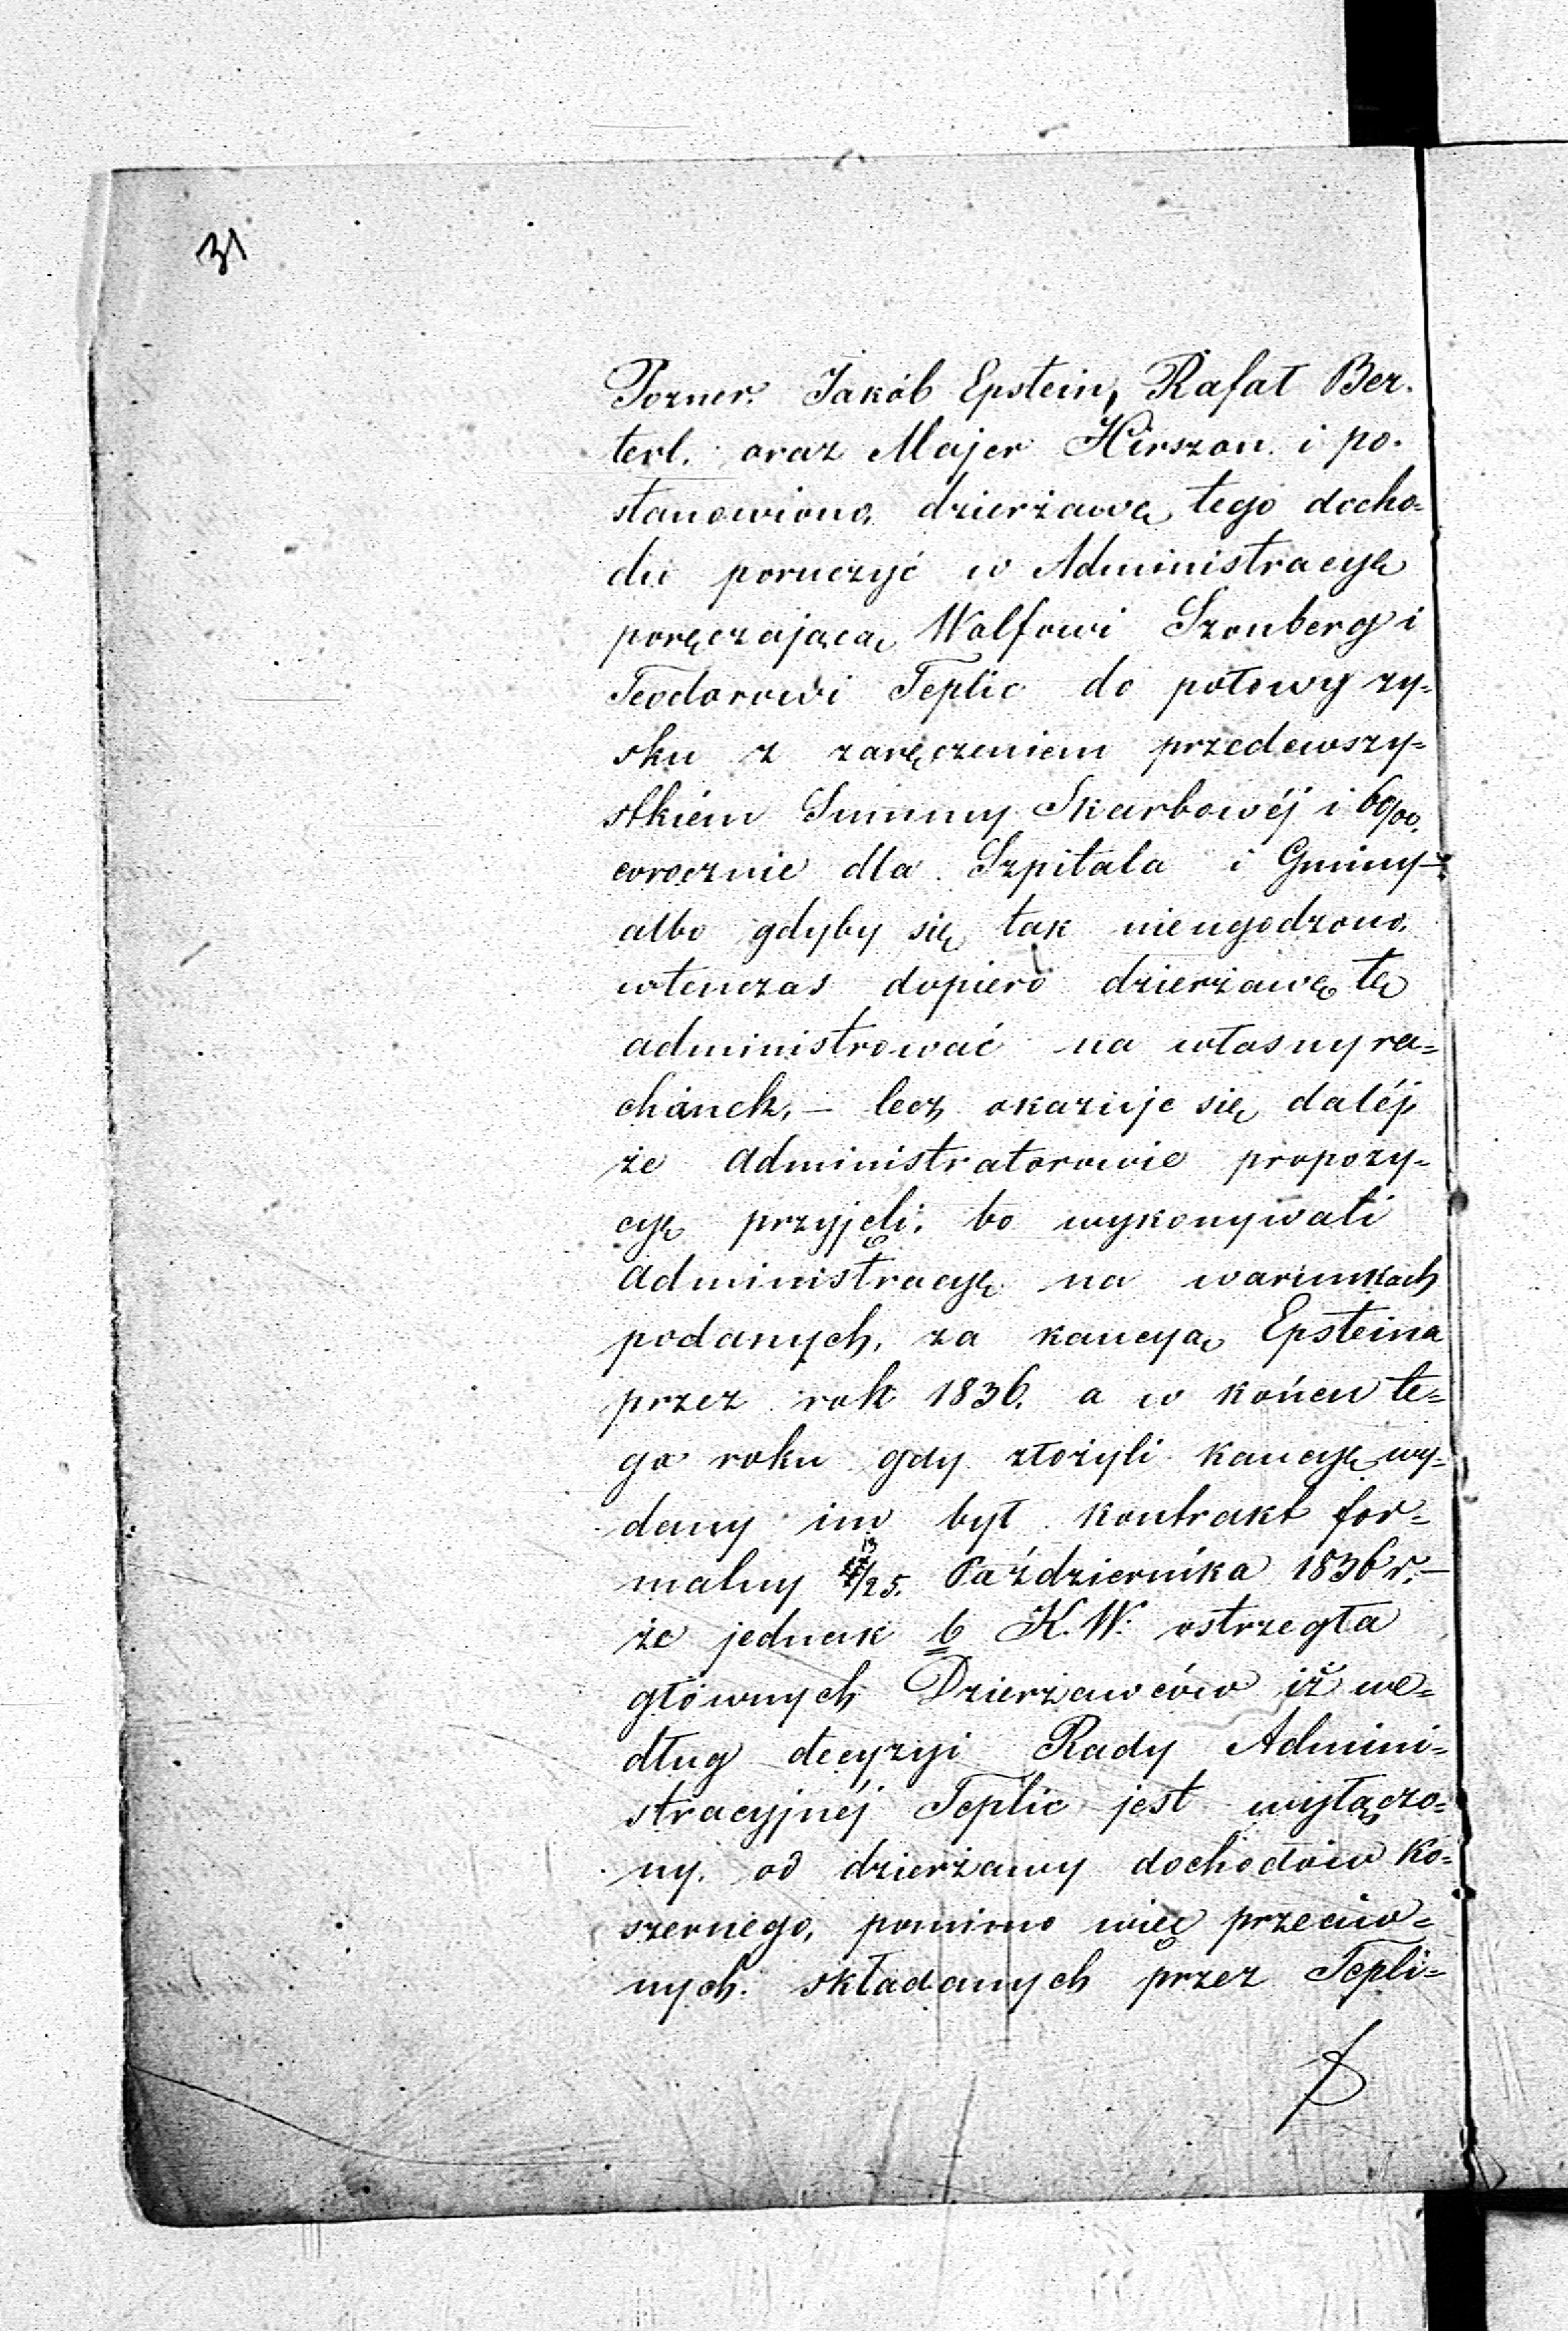 31
Pozner. Jakób Epstein, Rafał Ber.
terl. oraz Majer Hirszon. i po.
stanowiono, dzierżawę tego docho=
du poruczyć w Administracyę
poręczającą Wolfowi Szonberg i
Teodorowi Teplic do połowy zy=
sku z zaręczeniem przedewszy=
stkiém Summy Skarbowéj i
corocznie dla Szpitala i Gminy—
albo gdyby się tak nieugodzono,
wtenczas dopiero dzierżawę tę
administrować na własny ra=
chunek, — lecz okazuje się daléj,
że Administratorowie propozy=
cyę przyjęli; bo wykonywali
Administracyę na warunkach
podanych, za kaucyą Epsteina
przez rok 1836. a w końcu te=
go roku gdy złożyli kaucyę wy=
dany im był kontrakt for=
malny 13/25. Października 1836 r.—
że jednak b K. W. ostrzegła
głównych Dzierżawców iż we=
dług decyzyi Rady Admini=
stracyjnéj Teplic jest wyłączo=
ny. od dzierżawy dochodów ko=
szernego, pomimo więc przeciw=
nych. składanych przez Tepli=